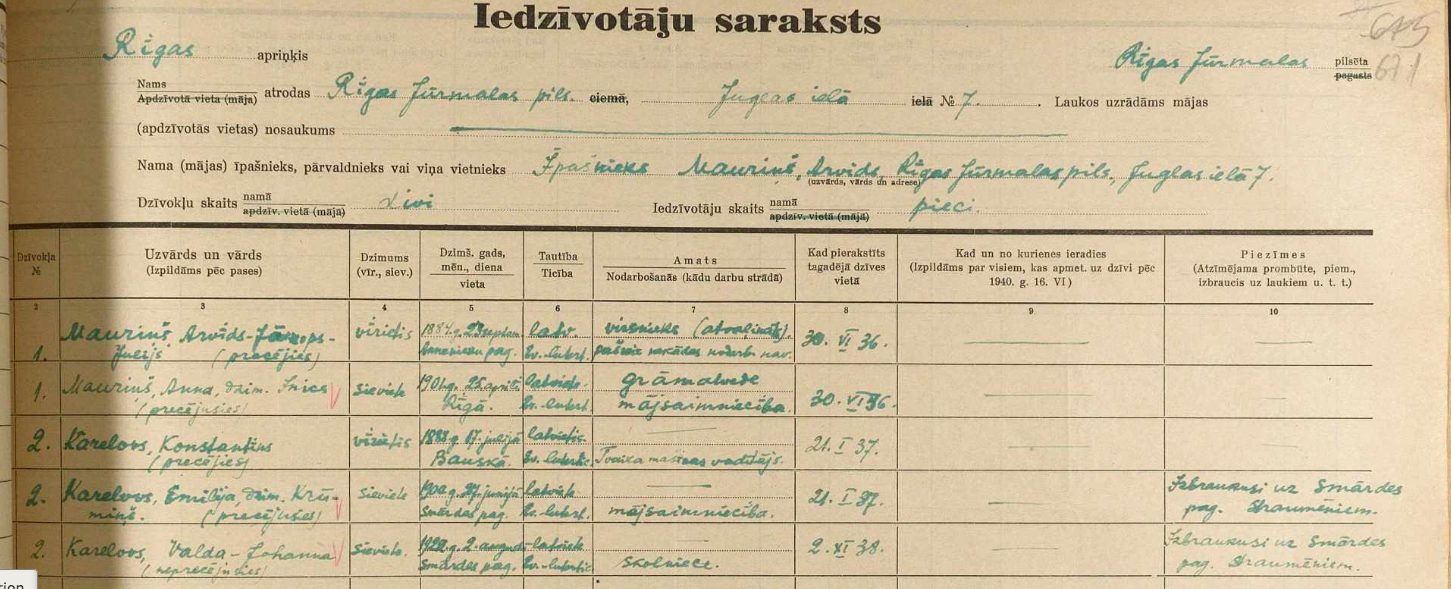 Iedzīvotāju saraksts
675
671
Rīgas apriņķis Rīgas Jūrmalas pilsēta
pagasts
Nams
Apdzīvotā vieta (māja) atrodas Rīgas Jūrmalas pils. ciemā, Juglas ielā ielā № 7. Laukos uzrādāms mājas
(apdzīvotās vietas) nosaukums
Nama (mājas) īpašnieks, pārvaldnieks vai viņa vietnieks Īpašnieks Mauriņš, Arvīds, Rīgas Jūrmalas pils., Juglas ielā 7.
(uzvārds, vārds un adrese)
Dzīvokļu skaits namā divi Iedzīvotāju skaits namā pieci.
apdzīv. vietā (mājā) apdzīv. vietā (mājā)
Dzīvokļa № Uzvārds un vārds (Izpildāms pēc pases) Dzimums (vīr., siev.) Dzimš. gads, mēn., diena vieta Tautība Ticība Amats Nodarbošanās (kādu darbu strādā) Kad pierakstīts tagadējā dzīves vietā Kad un no kurienes ieradies (Izpildāms par visiem, kas apmet. uz dzīvi pēc 1940. g. 16. VI) Piezīmes (Atzīmējama prombūte, piem., izbraucis uz laukiem u. t. t.)
2 3 4 5 6 7 8 9 10
Mauriņš, Arvīds- vīrietis latv. virsnieks (atvaļināts). 30. VI 36.
1. Jūlijs (precējies) pag. Ev. luter.
1. Mauriņš, Anna, dzim. sieviete 1901.g. 25. aprīlī latviete grāmatvede 30. VI 36.
(precējusies) Rīgā. Ev. luter. mājsaimniecība.
2. Karelovs, Konstantīns vīrietis 1888.g. 17. jūlijā latvietis 21. I 37.
(precējies) Bauskā. Ev. luter. Tvaika mašīnas vadītājs.
2. Karelovs, Emilija dzim. Krū- sieviete latviete 21. I 37. Izbraukusi uz Smārdes
miņš. (precējusies) Smārdes pag. Ev. luter. mājsaimniecība. pag. Straumēniem.
2. Karelovs, Valda-Johanna sieviete 2. augustā latviete 2. XI 38. Izbraukusi uz Smārdes
(neprecējusies) Smārdes pag. Ev. luter. skolniece. pag. Straumēniem.